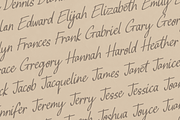 Dennis
lan Edward Elijah Elizabeth
lyn Frances Frank Gabriel Gary Geor
race Gregory Hannah Harold Heather
ck Jacob Jacqueline James Janet Janice
nnifer Jeremy Jerry Jesse Jessica Joa
Joshua Joyce Juan